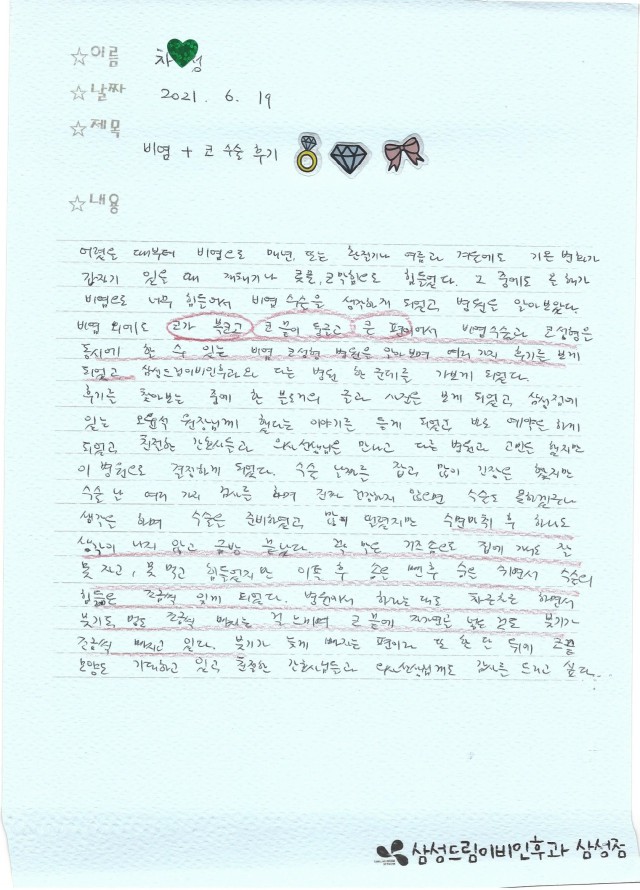 ☆이름 차 성
☆날짜 2021. 6. 19
☆제목
비염 + 코 수술 후기
☆내용
어렸을 때부터 비염으로 매년, 또는 환절기나 여름과 겨울에도 기온 변화가
갑자기 일을 때 재채기나 콧물, 코막힘으로 힘들었다. 그 중에도 올해가
비염으로 너무 힘들어서 비염 수술을 생각하게 되었고 병원을 알아보았다.
비염 외에도 코가 복코고 코 끝이 뭉툭고 큰 편이어서 비염수술과 코성형을
동시에 한 수 있는 비염 코성형 병원을 알아보며 여러 가지 후기를 보게
되었고 삼성드림이비인후과와 다른 병원 한 군데를 가보게 되었다.
후기를 찾아보는 중에 한 분의 글과 사진을 보게 되었고 삼성점에
있는 원장님께 했다는 이야기를 듣게 되었고 바로 예약을 하게
되었고 친절한 간호사들과 의사선생님을 만나고 다른 병원과 고민은 했지만
이 병원으로 결정하게 되었다. 수술 날짜를 잡고 많이 긴장은 했지만
수술 난 여러 가지 검사를 하며 진짜 건강하지 않으면 수술도 못하겠구나
생각을 하며 수술을 준비하였고 많이 떨렸지만 수면마취 후 하나도
생각이 나지 않고 금방 끝났다. 꽉 막은 기존솜으로 집에 가서도 잠
못 자고, 못 먹고 힘들었지만 이틀 후 솜을 뺀 후 숨을 쉬면서 수술의
힘듦은 조금씩 잊게 되었다. 병원에서 하라는 대로 차근차근 하면서
붓기도 멍도 조금씩 빠지는 걸 느끼며 코 끝에 자가연골 넣은 것도 붓기가
조금씩 빠지고 있다. 붓기가 늦게 빠지는 편이라 또 한 달 뒤에 코끝
모양도 기대하고 있고 친절한 간호사님들과 의사선생님께도 감사를 드리고 싶다..
삼성드림이비인후과 삼성점